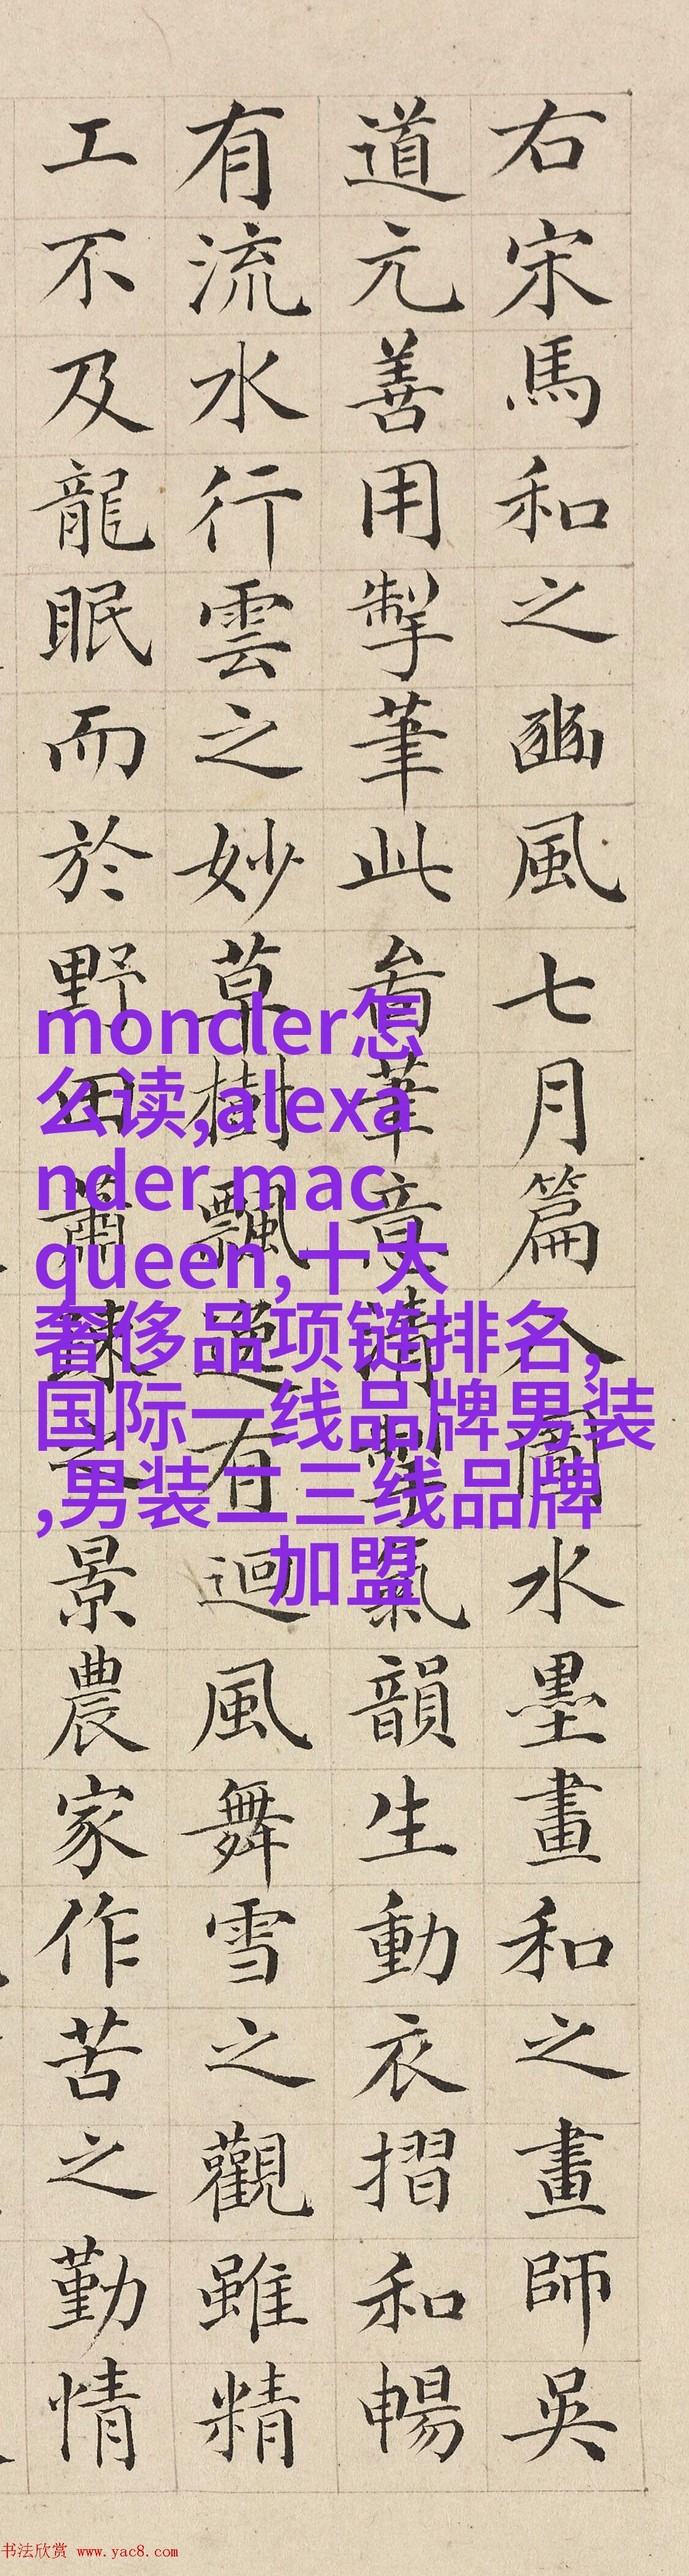 右宋馬和之豳風七月篇八圖水墨畫和之畫師吳
道元善用掣筆此筆意清氣韻生動衣摺和暢
有流水行雲之妙草樹飄逸有迴風舞雪之觀雖精
工不及龍眠而於野田蕭疎之景農家作苦之勤情
moncler怎
么读,alexa
nder mac
queen,十大
奢侈品项链排名,
国际一线品牌男装
,男装二三线品牌
加盟
书法欣赏 www.yac8.com